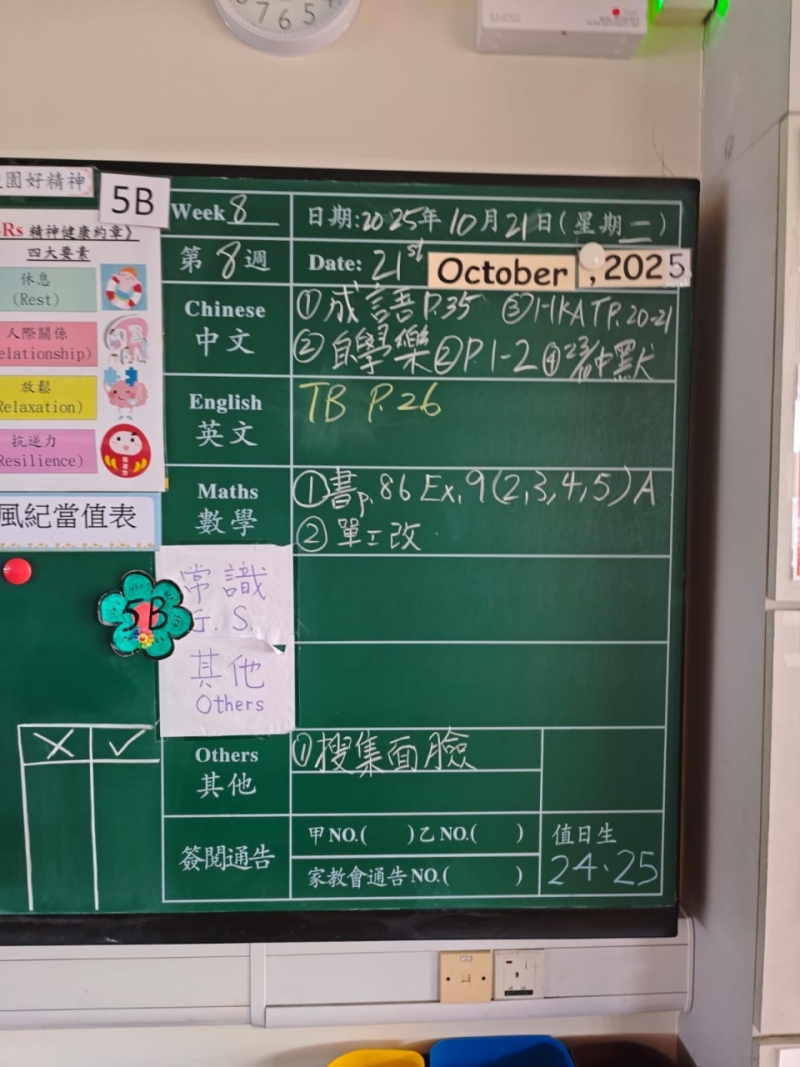 7 6 5
園好精神
5B
Rs 精神健康約章》
四大要素
休息
(Rest)
人際關係
elationship)
放鬆
Relaxation)
抗逆力
Resilience)
風紀當值表
5B
X ✓
Week 8 日期:2025年10月21日(星期二)
第8週 Date: 21st October, 2025
Chinese 中文
①成語P.35 ③HKAT P.20-21
②自學樂②P.1-2 ④23/10中默
English 英文
TB P.26
Maths 數學
①書p.86 Ex.9(2,3,4,5)A
②單工改
常識
G.S.
其他
Others
Others 其他
①搜集面臉
簽閱通告
甲NO.( )乙NO.( )
家教會通告NO.( )
值日生
24、25